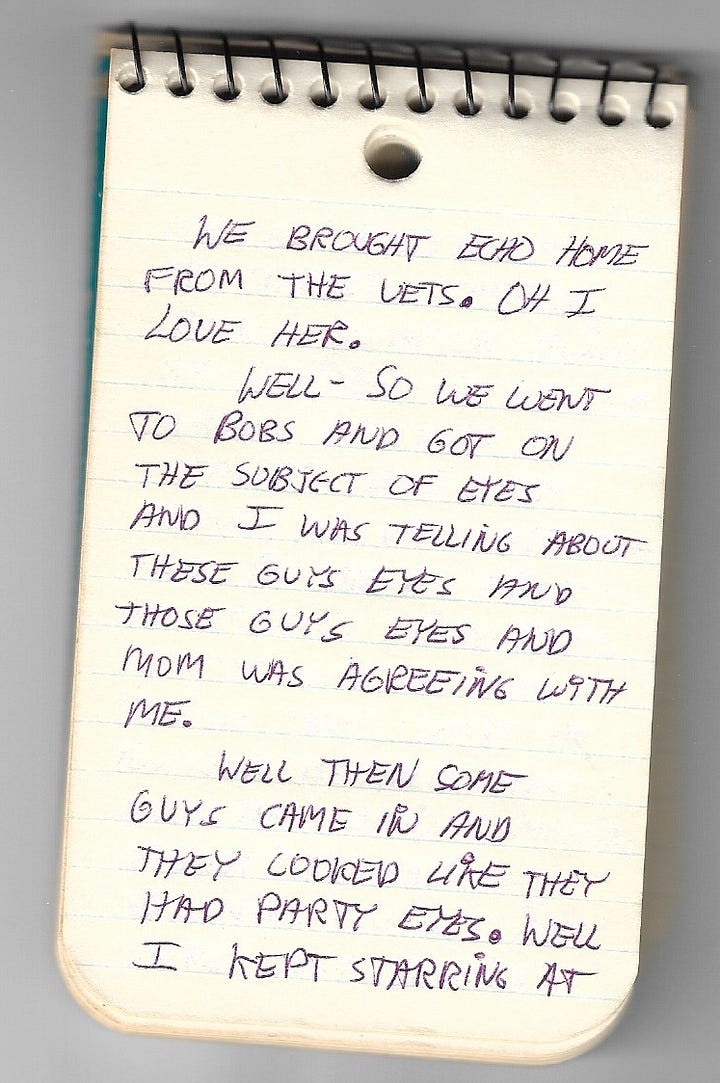 WE BROUGHT ECHO HOME
FROM THE VETS. OH I
LOVE HER.
WELL - SO WE WENT
TO BOBS AND GOT ON
THE SUBJECT OF EYES
AND I WAS TELLING ABOUT
THESE GUYS EYES AND
THOSE GUYS EYES AND
MOM WAS AGREEING WITH
ME.
WELL THEN SOME
GUYS CAME IN AND
THEY LOOKED LIKE THEY
HAD PARTY EYES. WELL
I KEPT STARRING AT